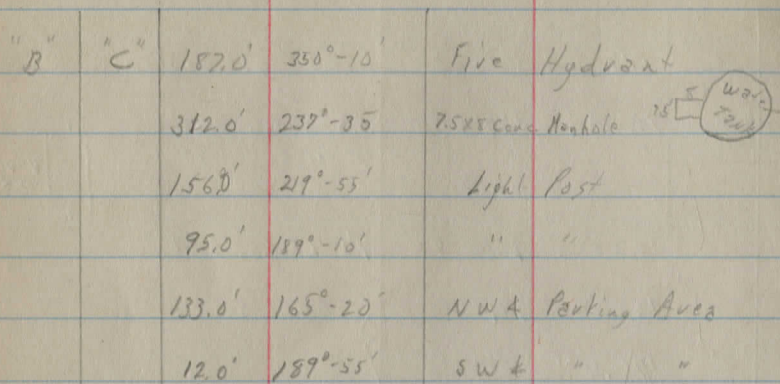 "B" "C" 187.0' 350°-10' Fire Hydrant
312.0' 237°-35 7.5x5 Conc. Manhole 7.5 5 Water Tank
156.0' 219°-55' Light Post
95.0' 189°-10' " "
133.0' 165°-20' NW Parking Area
12.0' 189°-55' SW " "